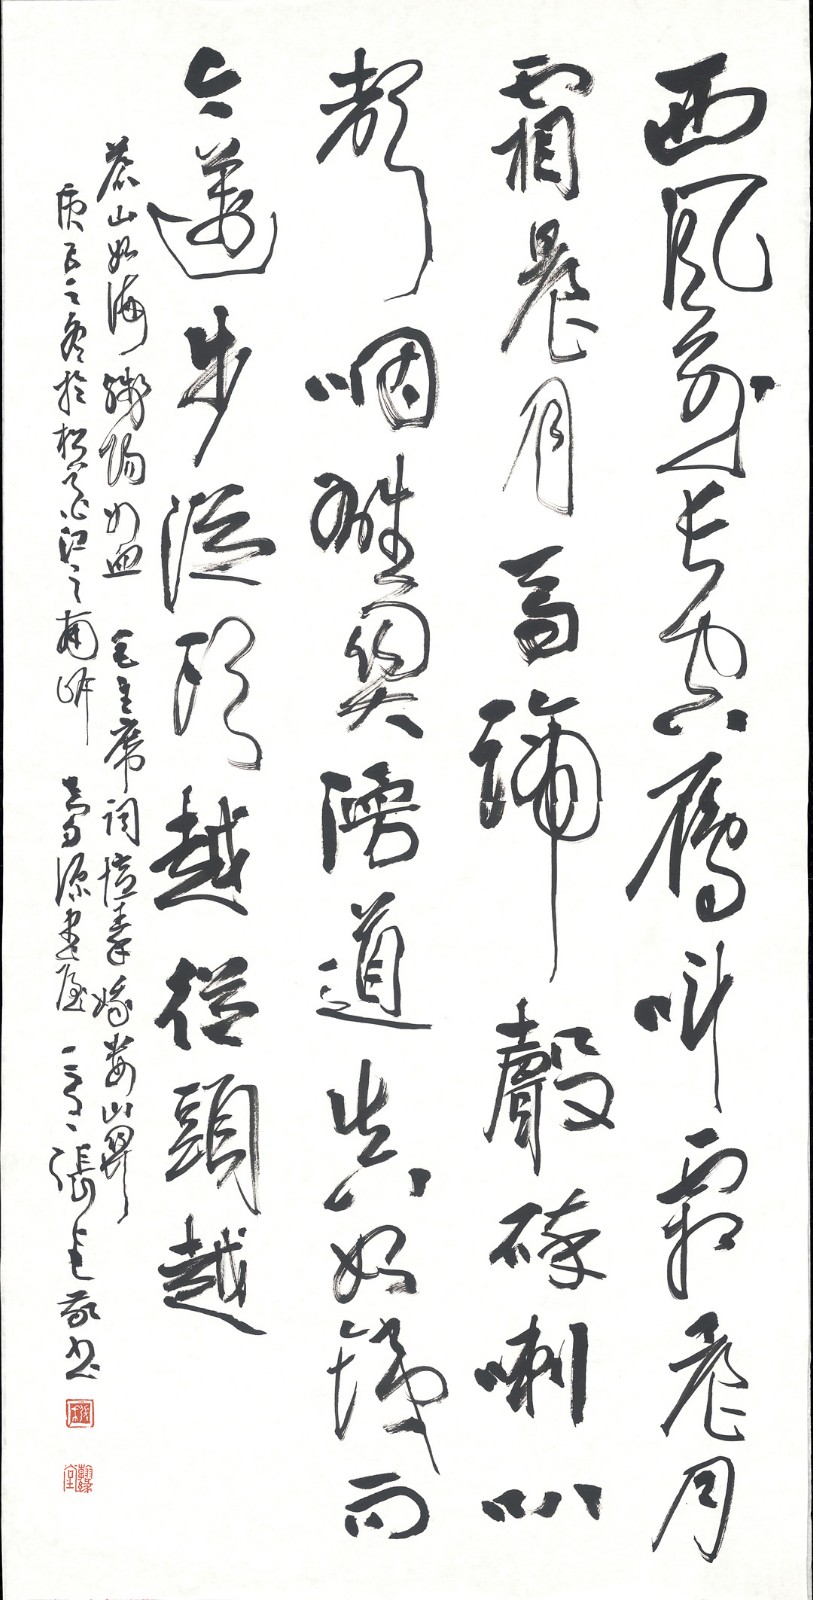 西風烈長空雁叫霜晨月
霜晨月馬蹄聲碎喇叭
聲咽雄關漫道真如鐵而
今邁步從頭越從頭越
蒼山如海殘陽如血 毛主席詞憶秦娥婁山関
庚辰之冬於松花江之南岸 書屋 張 敬書